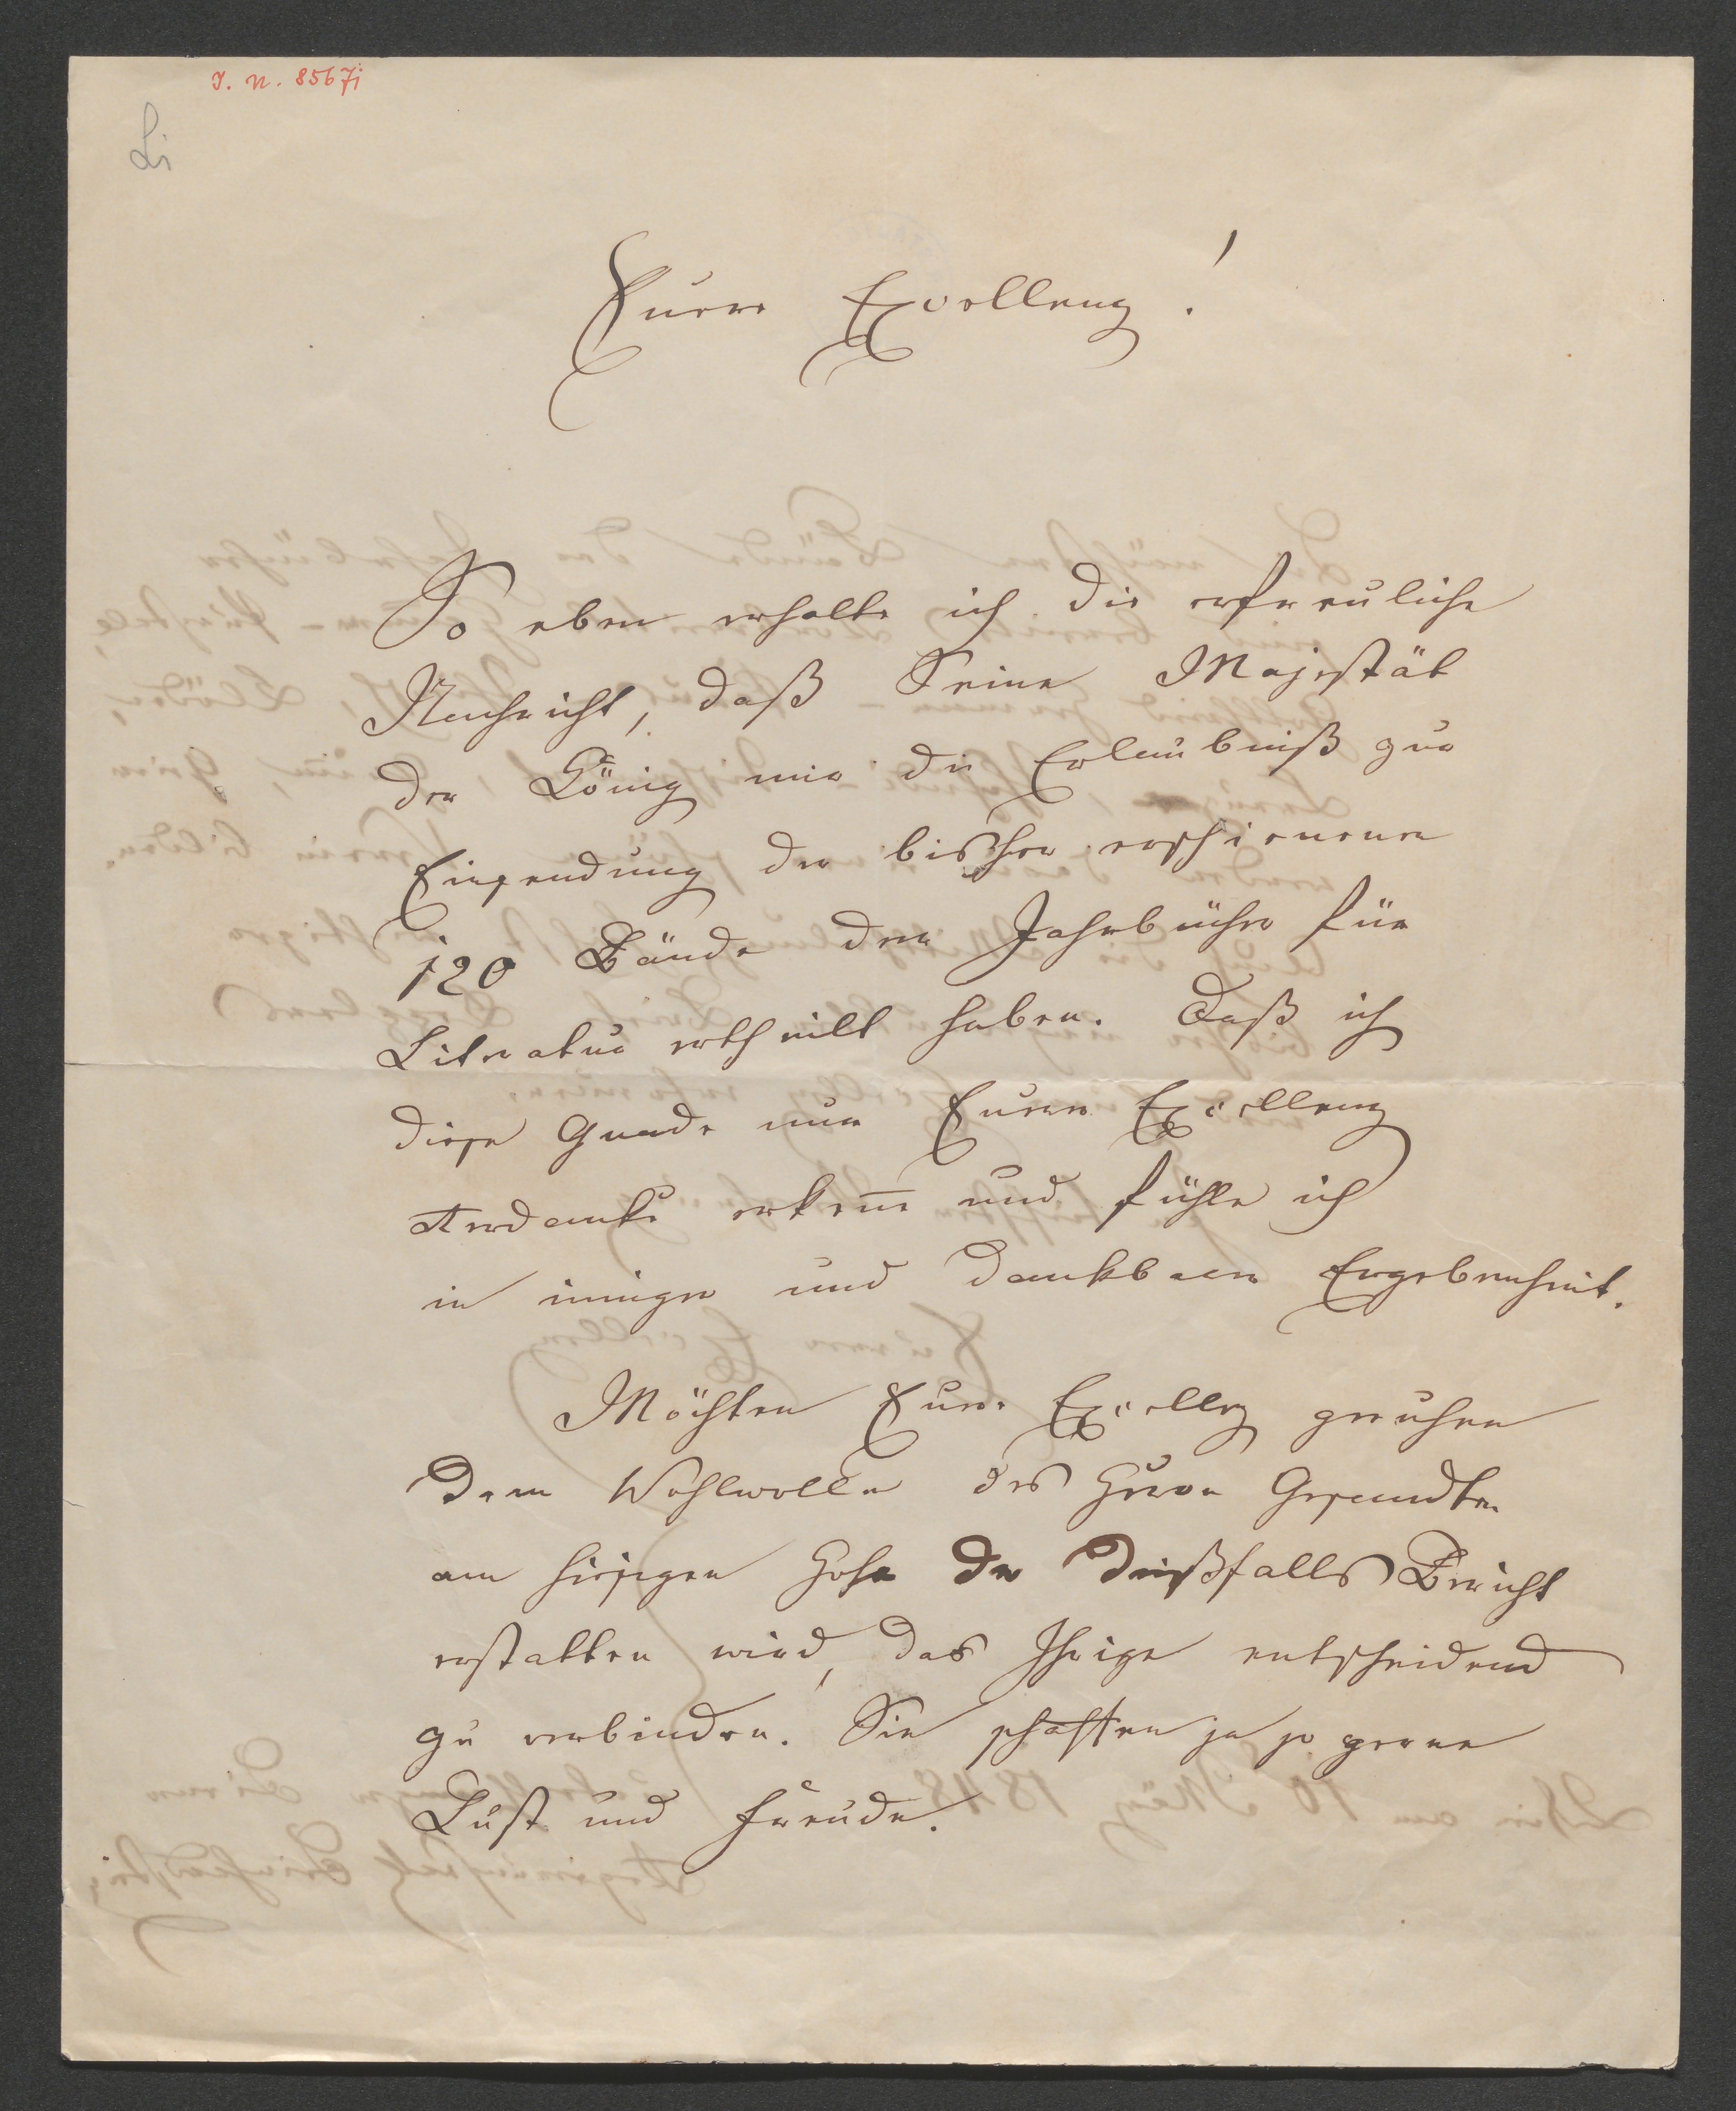 I. N. 8567i
Li
Eure Excellenz!
So eben erhalte ich die erfreuliche
Nachricht, daß Seine Majestät
der König mir die Erlaubniß zur
Einsendung der bisher erschienenen
120 Bände der Jahrbücher für
Literatur ertheilt haben. Daß ich
diese Gnade nur Euerer Excellenz
verdanke erkeñe und fühle ich
in inniger und dankbarer Ergebenheit.
Möchten Eure Excellz geruhen
dem Wohlwollen des Herrn Gesandten
am hiesigen Hofe der dießfalls Bericht
erstatten wird, das Ihrige entscheidend
zu verbinden. Sie schaffen ja so gerne
Lust und Freude.